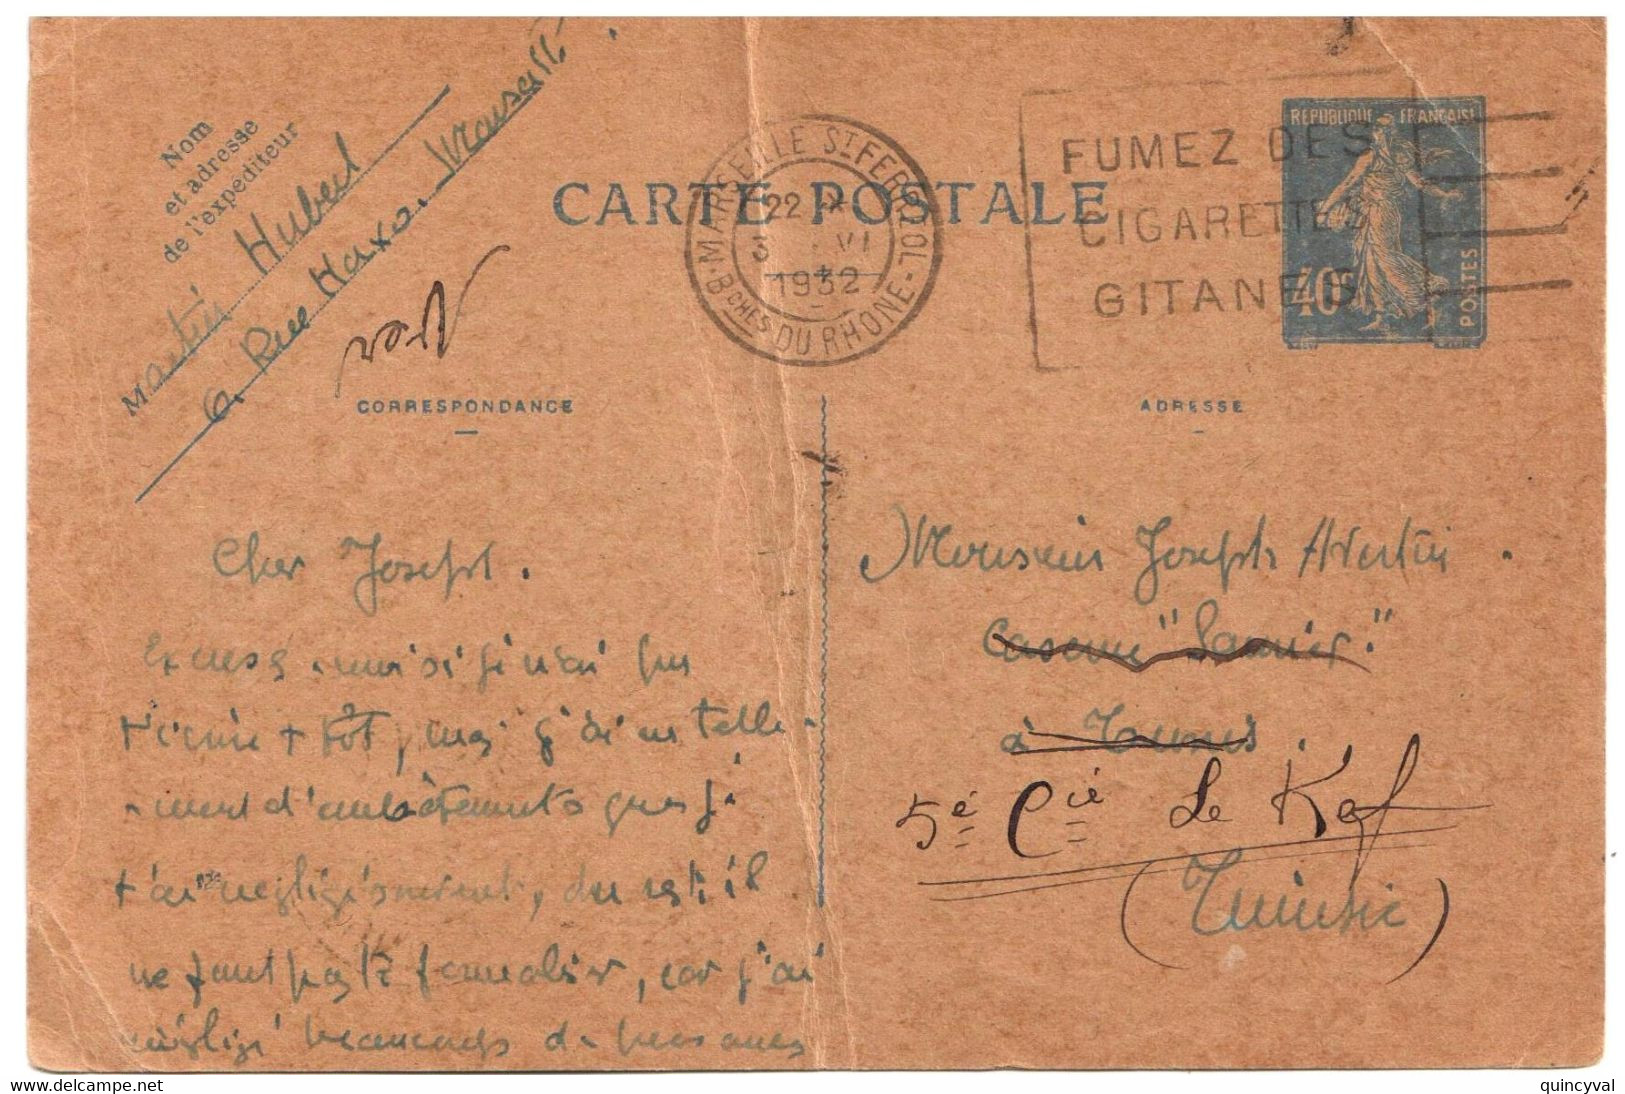 Nom
et adresse
de l'expéditeur
Martin Hubert
6. Rue Haxo. Marseille
CARTE POSTALE
MARSEILLE ST FERREOL
22
3 VI
1932
BCHES DU RHONE
FUMEZ DES
CIGARETTES
GITANES
REPUBLIQUE FRANÇAISE
40c
POSTES
CORRESPONDANCE
ADRESSE
Cher Joseph.
Excuse-moi si je n'ai pas
t'écrire + tôt, mais j'ai eu telle-
-ment d'embêtements que je
t'ai négligé, du reste il
ne faut pas te formaliser, car j'ai
négligé beaucoup de personnes
Monsieur Joseph Martin
Caserne
à Tunis.
5é Cié Le Kef
(Tunisie)
www.delcampe.net
quincyval